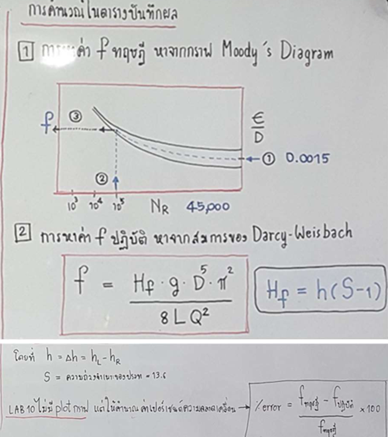 การคำนวณในตารางบันทึกผล
1 การหาค่า f ทฤษฎี หาจากกราฟ Moody's Diagram
f
③
②
ϵ/D
① 0.0015
10³ 10⁴ 10⁵ N_R 45,000
2 การหาค่า f ปฏิบัติ หาจากสมการของ Darcy-Weisbach
f = H_f · g · D⁵ · π² / 8 L Q²
H_f = h (S-1)
โดยที่ h = Δh = h_L - h_R
S = ความถ่วงจำเพาะของปรอท = 13.6
LAB 10 ไม่มี plot กราฟ แต่ให้คำนวณ ค่าเปอร์เซนต์ความคลาดเคลื่อน → % error = f ทฤษฎี - f ปฏิบัติ / f ทฤษฎี × 100